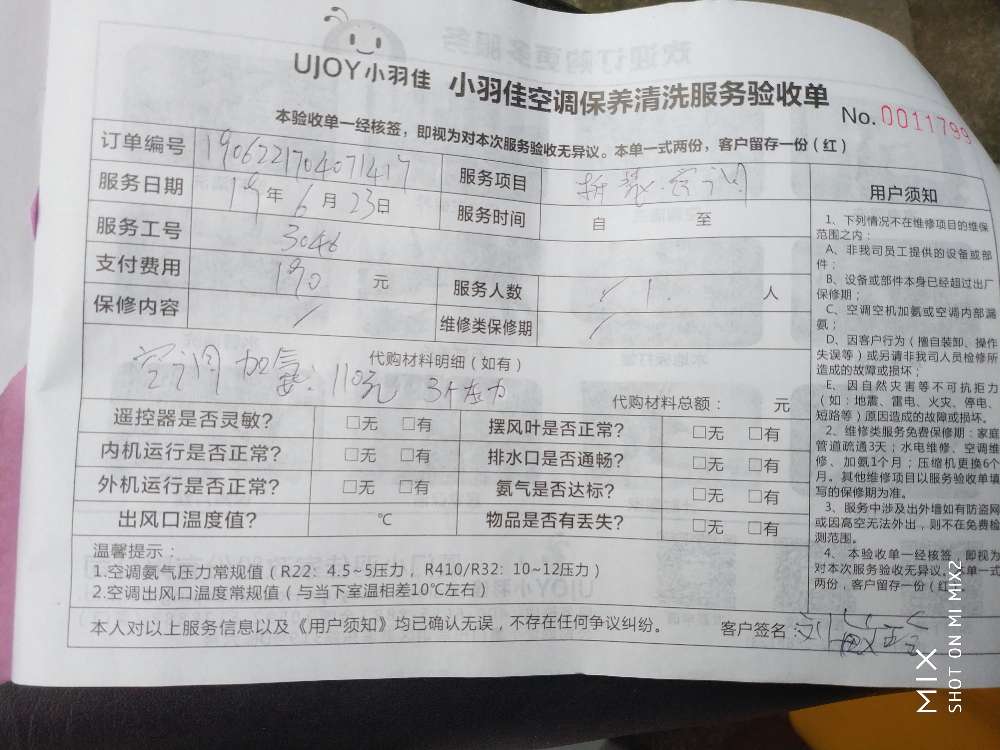 UJOY小羽佳 小羽佳空调保养清洗服务验收单
No. 0011799
本验收单一经核签，即视为对本次服务验收无异议。本单一式两份，客户留存一份（红）
订单编号 190622170407141 7 服务项目 拆装空调
服务日期 19年6月23日 服务时间 自 至
服务工号 3046
支付费用 190 元 服务人数 1 人
保修内容 / 维修类保修期 /
代购材料明细（如有）
空调加氨：110元 3个压力
代购材料总额： 元
遥控器是否灵敏？ □无 □有 摆风叶是否正常？ □无 □有
内机运行是否正常？ □无 □有 排水口是否通畅？ □无 □有
外机运行是否正常？ □无 □有 氨气是否达标？ □无 □有
出风口温度值？ ℃ 物品是否有丢失？ □无 □有
温馨提示：
1.空调氨气压力常规值（R22：4.5~5压力，R410/R32：10~12压力）
2.空调出风口温度常规值（与当下室温相差10℃左右）
本人对以上服务信息以及《用户须知》均已确认无误，不存在任何争议纠纷。 客户签名：
用户须知
1、下列情况不在维修项目的维保
范围之内：
A、非我司员工提供的设备或部
件；
B、设备或部件本身已经超过出厂
保修期；
C、空调空机加氨或空调内部漏
氨；
D、因客户行为（擅自装卸、操作
失误等）或另请非我司人员检修所
造成的故障或损坏；
E、因自然灾害等不可抗拒力
（如：地震、雷电、火灾、停电、
短路等）原因造成的故障或损坏。
2、维修类服务免费保修期：家庭
管道疏通3天；水电维修、空调维
修、加氨1个月；压缩机更换6个
月。其他维修项目以服务验收单填
写的保修期为准。
3、服务中涉及出外墙如有防盗网
或因高空无法外出，则不在免费检
测范围。
4、本验收单一经核签，即视为
对本次服务验收无异议。本单一式
两份，客户留存一份（红
MIX
SHOT ON MI MIX2